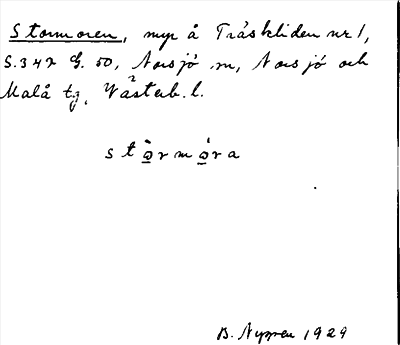 Stormoren, myr å Träskliden nr 1,
S. 342 G. 50, Norsjö sn, Norsjö och
Malå tg, Västerb. l.
stòrmóra
B. Nygren 1929